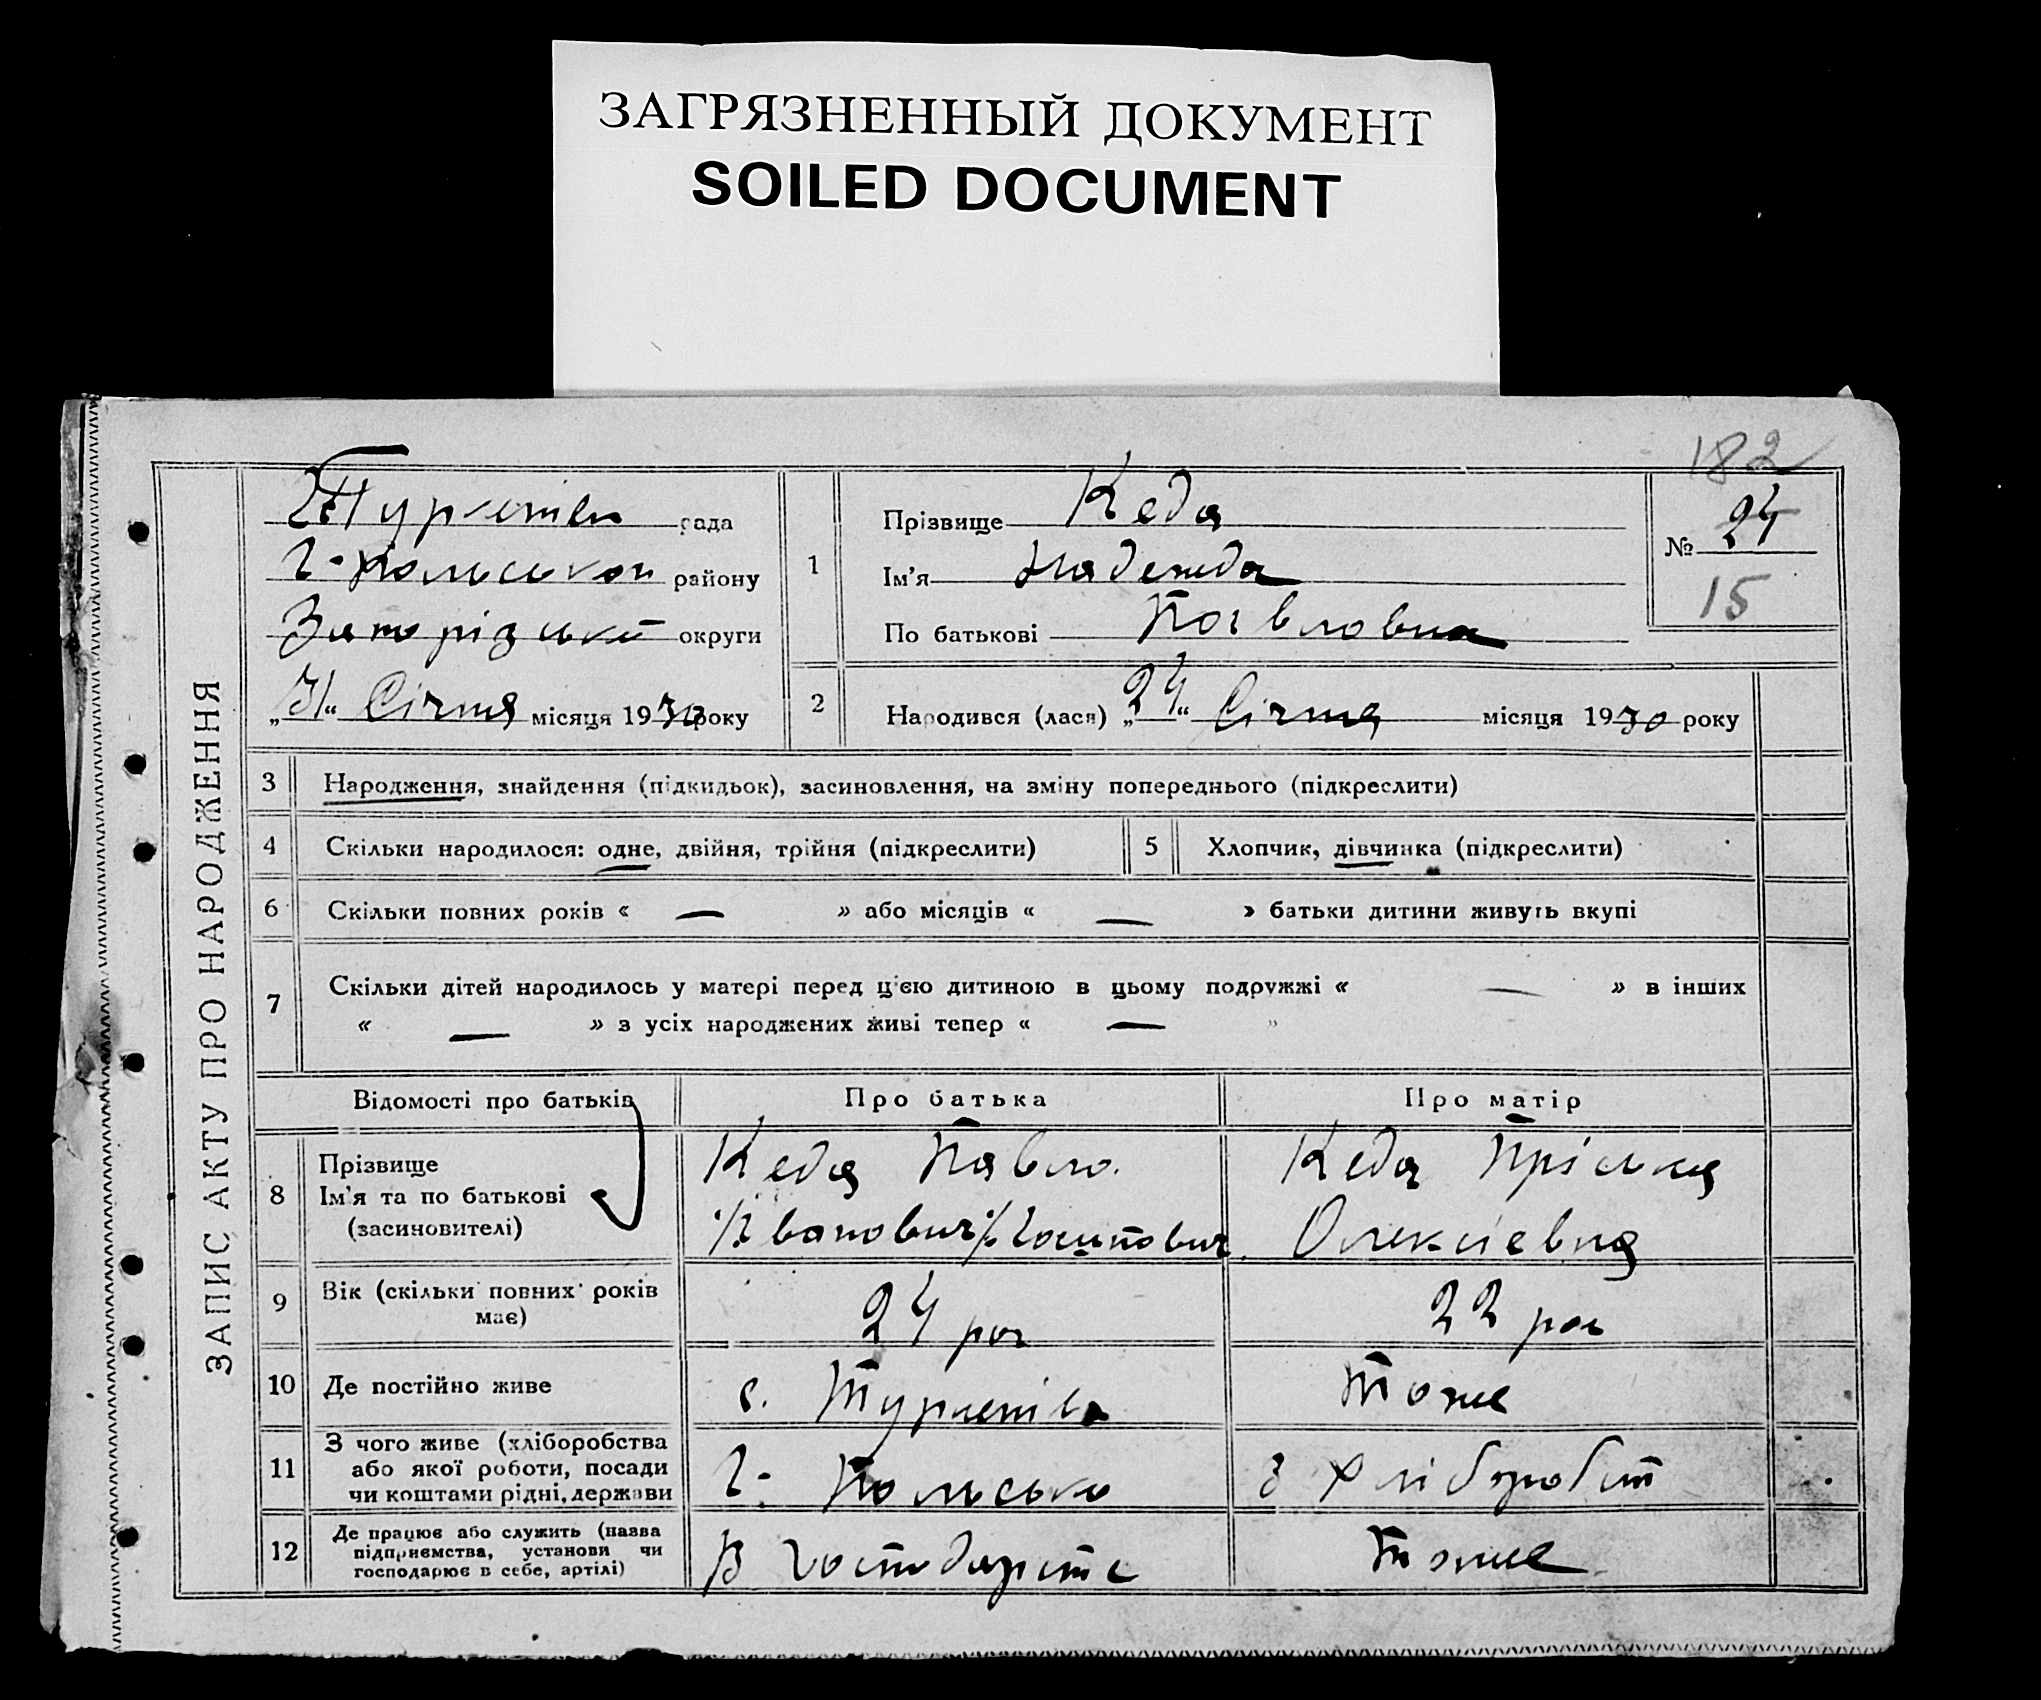 ЗАГРЯЗНЕННЫЙ ДОКУМЕНТ
SOILED DOCUMENT
182
ЗАПИС АКТУ ПРО НАРОДЖЕННЯ
рада
Г-Польської району
Запорізької округи
„31“ Січня місяця 1930 року
1
Прізвище Кеда
Ім'я Надежда
По батькові Павловна
№ 24
15
2
Народився (лася) „24“ Січня місяця 1930 року
3 Народження, знайдення (підкидьок), засиновлення, на зміну попереднього (підкреслити)
4 Скільки народилося: одне, двійня, трійня (підкреслити) 5 Хлопчик, дівчинка (підкреслити)
6 Скільки повних років « — » або місяців « — » батьки дитини живуть вкупі
7 Скільки дітей народилось у матері перед цією дитиною в цьому подружжі « — » в інших
« — » з усіх народжених живі тепер « — »
Відомості про батьків Про батька Про матір
8 Прізвище
Ім'я та по батькові
(засиновителі)
Кеда Павло
Іванович
Кеда Пріська
Олексієвна
9 Вік (скільки повних років
має)
24 рок 22 рок
10 Де постійно живе с. Тоже
11 З чого живе (хліборобства
або якої роботи, посади
чи коштами рідні, держави
Г- Польсько З Хліборобст
12 Де працює або служить (назва
підприємства, установи чи
господарює в себе, артілі)
В господарсте Тоже